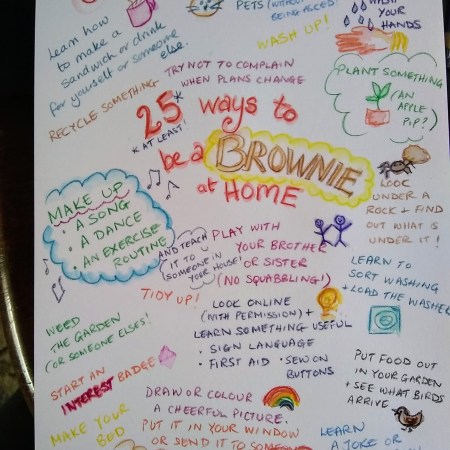 PETS (WITHOUT
BEING ASKED!
YOUR
HANDS
Learn how
to make a
sandwich or drink
for yourself or someone
else.
WASH UP!
RECYCLE SOMETHING
TRY NOT TO COMPLAIN
WHEN PLANS CHANGE
PLANT SOMETHING
(AN
APPLE
PIP?)
25* ways to
* AT LEAST!
be a BROWNIE
at HOME
LOOK
UNDER A
ROCK + FIND
OUT WHAT IS
UNDER IT!
MAKE UP
• A SONG
• A DANCE
• AN EXERCISE
ROUTINE
AND TEACH
IT TO
SOMEONE IN
YOUR HOUSE!
PLAY WITH
YOUR BROTHER
OR SISTER
(NO SQUABBLING!)
LEARN TO
SORT WASHING
+ LOAD THE WASHER
TIDY UP!
LOOK ONLINE
(WITH PERMISSION) +
LEARN SOMETHING USEFUL
• SIGN LANGUAGE
• FIRST AID • SEW ON
BUTTONS
WEED
THE GARDEN
(OR SOMEONE ELSES!)
PUT FOOD OUT
IN YOUR GARDEN
+ SEE WHAT BIRDS
ARRIVE
START AN
INTEREST BADGE
DRAW OR COLOUR
A CHEERFUL PICTURE.
PUT IT IN YOUR WINDOW
OR SEND IT TO SOMEONE
MAKE YOUR
BED
LEARN
A JOKE OR